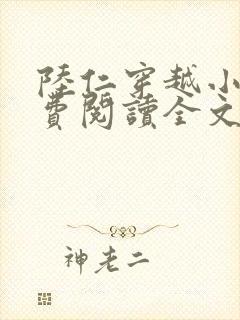 陸仁穿越小
費閱讀全文
神老二